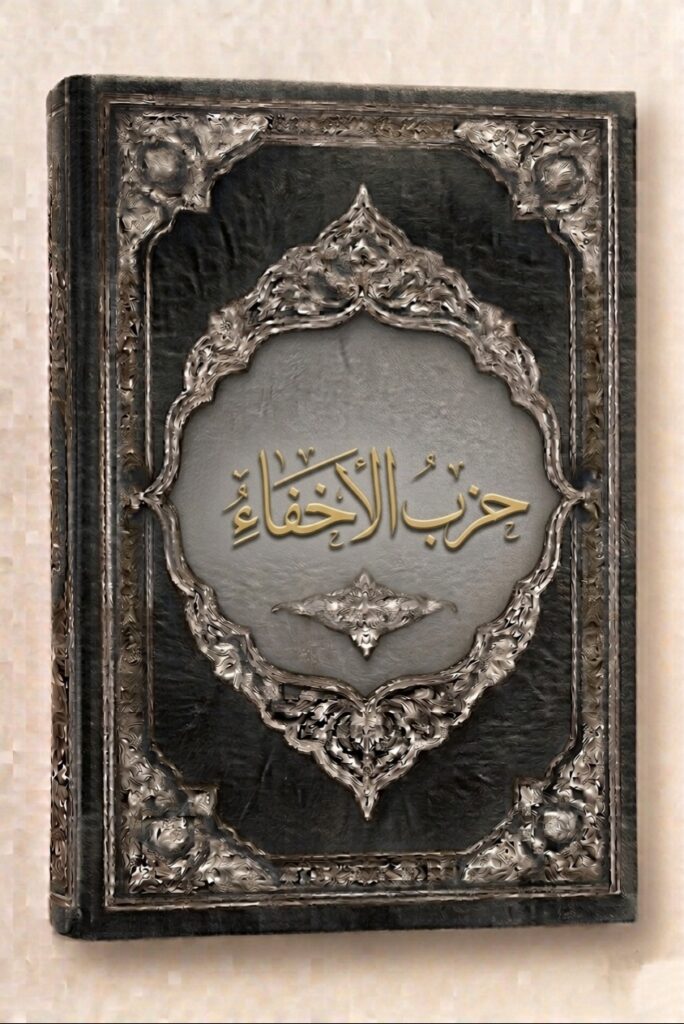 حزبُ الأخفاءُِ